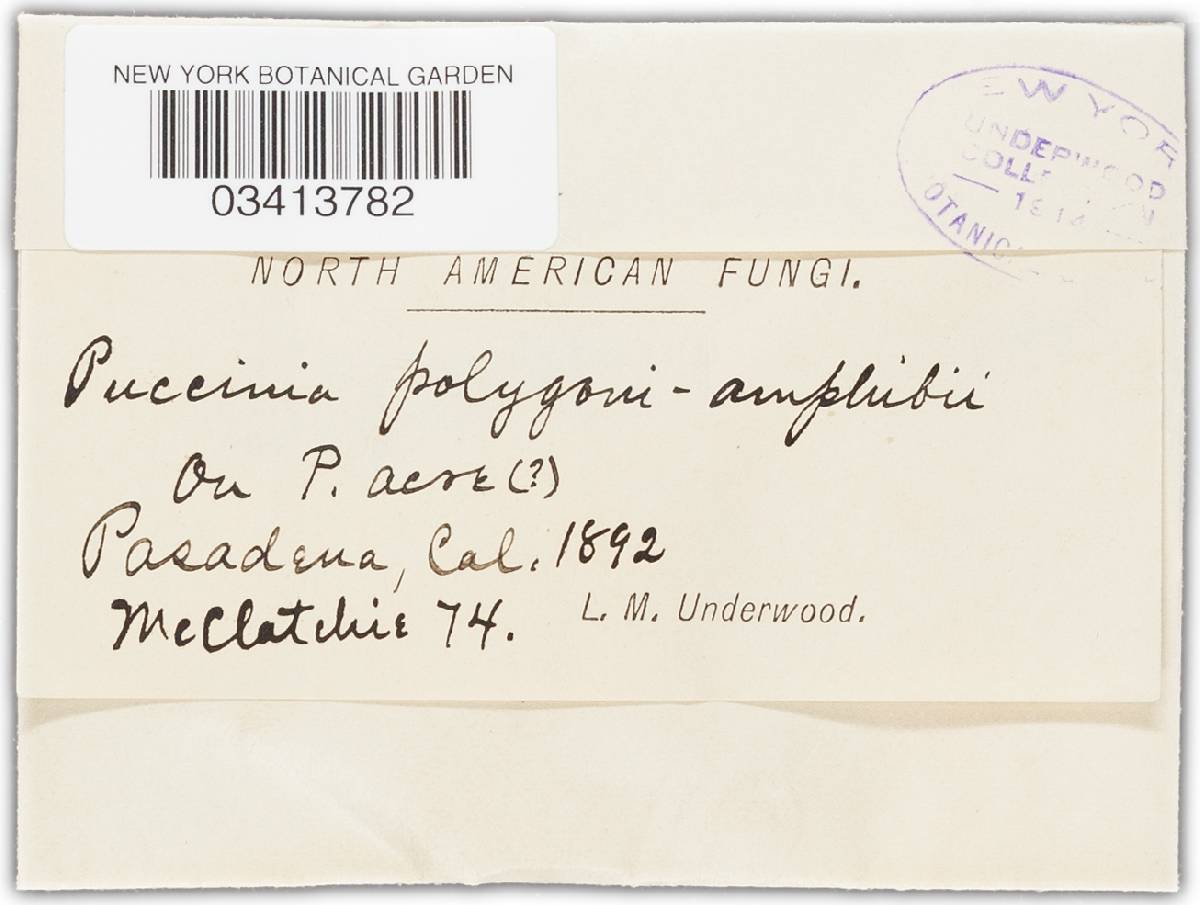 NEW YORK BOTANICAL GARDEN
03413782
EW YOR
UNDERWOOD
COLL
BOTANIC
NORTH AMERICAN FUNGI.
Puccinia polygoni-amphibii
On P. acre (?)
Pasadena, Cal. 1892
McClatchie 74.
L. M. Underwood.